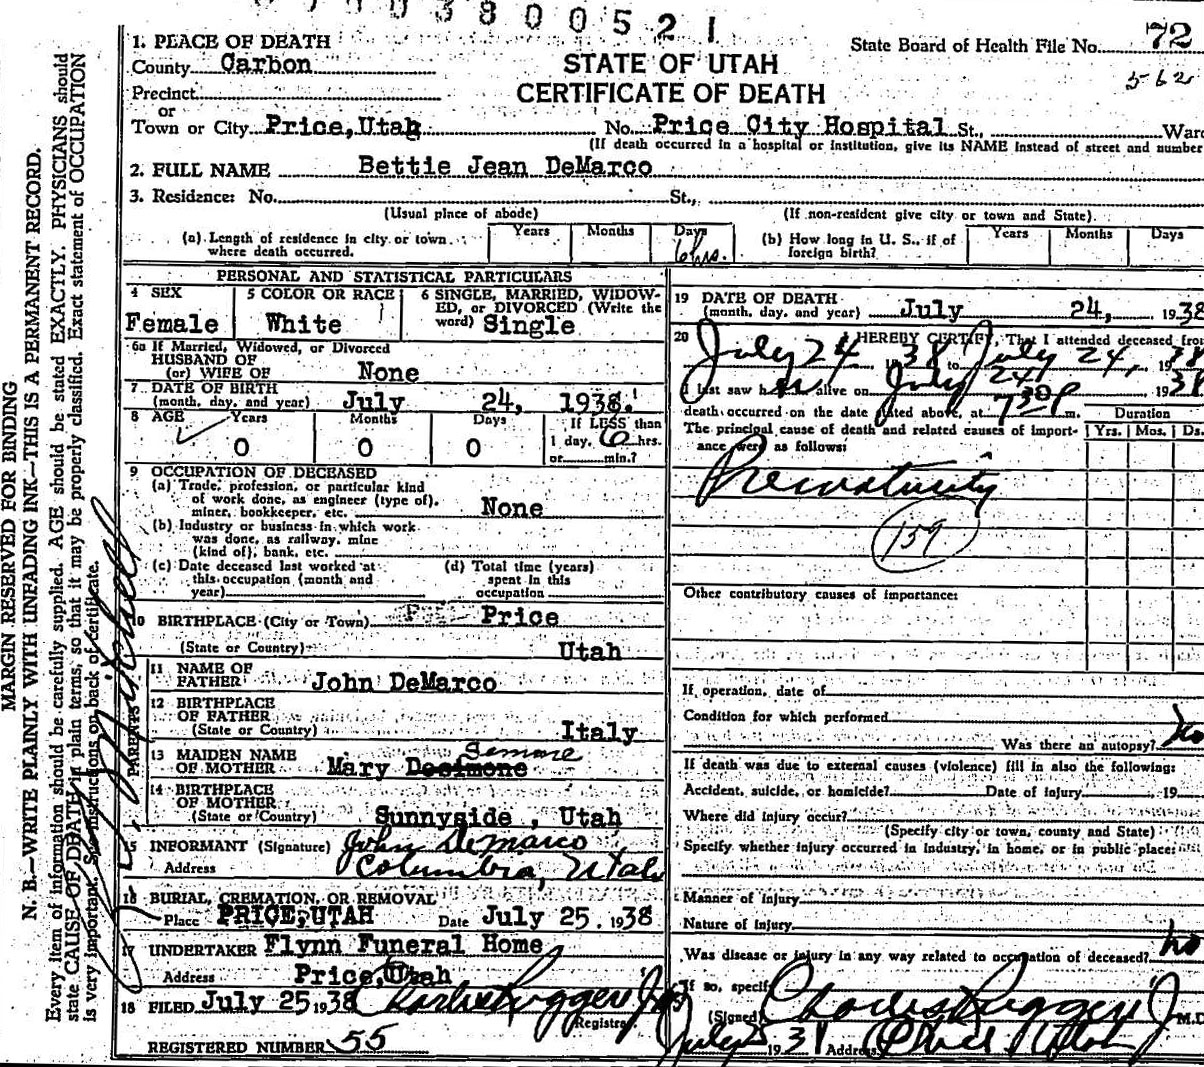 3800521
1. PLACE OF DEATH
State Board of Health File No. 72
County Carbon
STATE OF UTAH
562
Precinct
CERTIFICATE OF DEATH
or
Town or City Price, Utah No. Price City Hospital St., Ward
(If death occurred in a hospital or institution, give its NAME instead of street and number
2. FULL NAME Bettie Jean DeMarco
3. Residence: No. St.,
(Usual place of abode) (If non-resident give city or town and State)
(a) Length of residence in city or town where death occurred. Years Months Days 6 hrs. (b) How long in U. S., if of foreign birth? Years Months Days
PERSONAL AND STATISTICAL PARTICULARS
4 SEX Female
5 COLOR OR RACE White
6 SINGLE, MARRIED, WIDOWED, or DIVORCED (Write the word) Single
6a If Married, Widowed, or Divorced
HUSBAND OF
(or) WIFE OF None
7 DATE OF BIRTH
(month, day, and year) July 24, 1938.
8 AGE Years Months Days If LESS than
0 0 0 1 day, 6 hrs.
or min.?
9 OCCUPATION OF DECEASED
(a) Trade, profession, or particular kind
of work done, as engineer (type of),
miner, bookkeeper, etc. None
(b) Industry or business in which work
was done, as railway, mine
(kind of), bank, etc.
(c) Date deceased last worked at
this occupation (month and
year)
(d) Total time (years)
spent in this
occupation
10 BIRTHPLACE (City or Town) Price
(State or Country) Utah
PARENTS
11 NAME OF
FATHER John DeMarco
12 BIRTHPLACE
OF FATHER
(State or Country) Italy
13 MAIDEN NAME
OF MOTHER Mary Desimone Simone
14 BIRTHPLACE
OF MOTHER
(State or Country) Sunnyside, Utah
15 INFORMANT (Signature) John DeMarco
Address Columbia, Utah
16 BURIAL, CREMATION, OR REMOVAL
Place PRICE, UTAH Date July 25. 1938
17 UNDERTAKER Flynn Funeral Home
Address Price, Utah
18 FILED July 25 1938 Charles Ruggeri Jr
Registrar
REGISTERED NUMBER 55
19 DATE OF DEATH
(month, day, and year) July 24, 1938
20 I HEREBY CERTIFY, That I attended deceased from
July 24 1938 to July 24, 1938
I last saw her alive on July 24, 1938
death occurred on the date stated above, at 7:30 P m.
Duration
The principal cause of death and related causes of importance were as follows:
Yrs. Mos. Ds.
Prematurity
159
Other contributory causes of importance:
If operation, date of
Condition for which performed
Was there an autopsy? No
If death was due to external causes (violence) fill in also the following:
Accident, suicide, or homicide? Date of injury , 19
Where did injury occur?
(Specify city or town, county and State)
Specify whether injury occurred in industry, in home, or in public place:
Manner of injury
Nature of injury
Was disease or injury in any way related to occupation of deceased? No
If so, specify
(Signed) Charles Ruggeri Jr M.D.
July 25 1938 Address Price Utah
MARGIN RESERVED FOR BINDING
N. B.—WRITE PLAINLY WITH UNFADING INK—THIS IS A PERMANENT RECORD.
Every item of information should be carefully supplied. AGE should be stated EXACTLY. PHYSICIANS should
state CAUSE OF DEATH in plain terms, so that it may be properly classified. Exact statement of OCCUPATION
is very important. See instructions on back of certificate.
Mitchell